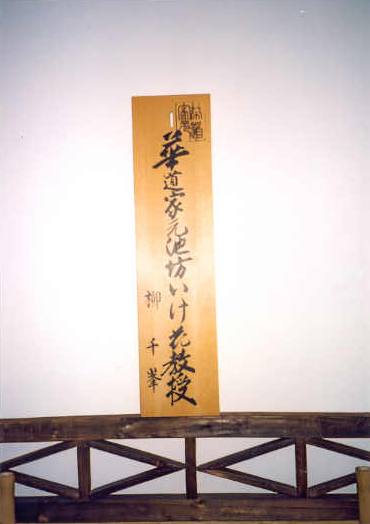 華道家元池坊いけ花教授
柳千峯